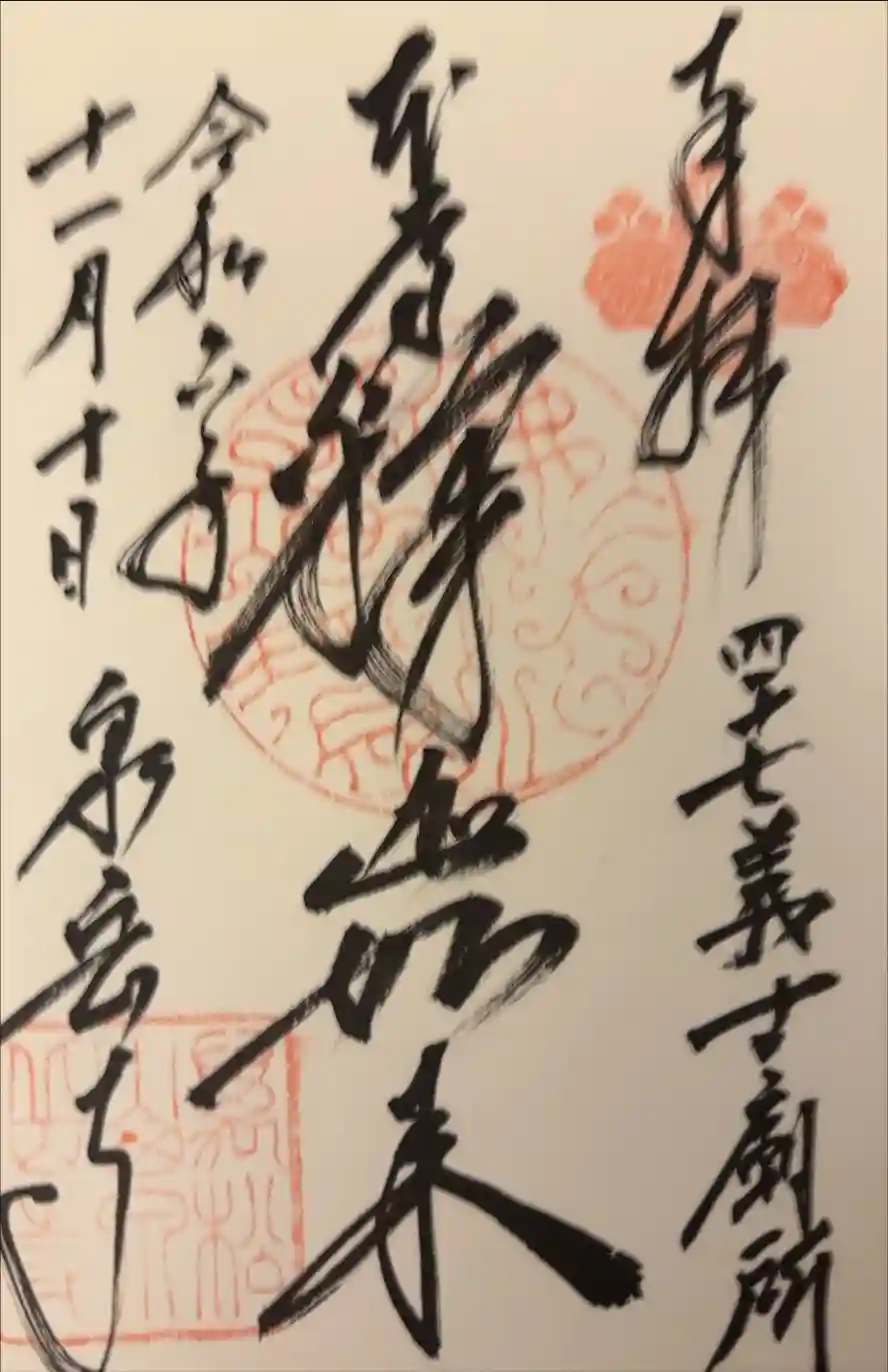 奉拝
四十七義士廟所
本尊釋迦如来
令和六年
十一月十日
泉岳寺